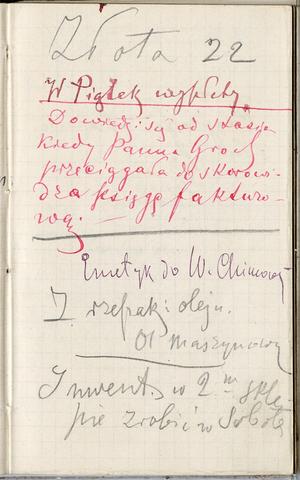 Złota 22
W Piątek wypłaty
Dowiedz się od Stasia
kiedy Panna Groch
przeciągała do skorowi-
dza księgę fakturo-
wą. —
Emetyk do W.
I rzepak: oleju.
Ol maszynowy
Inwent. w 2m skle
pie zrobić w Sobotę